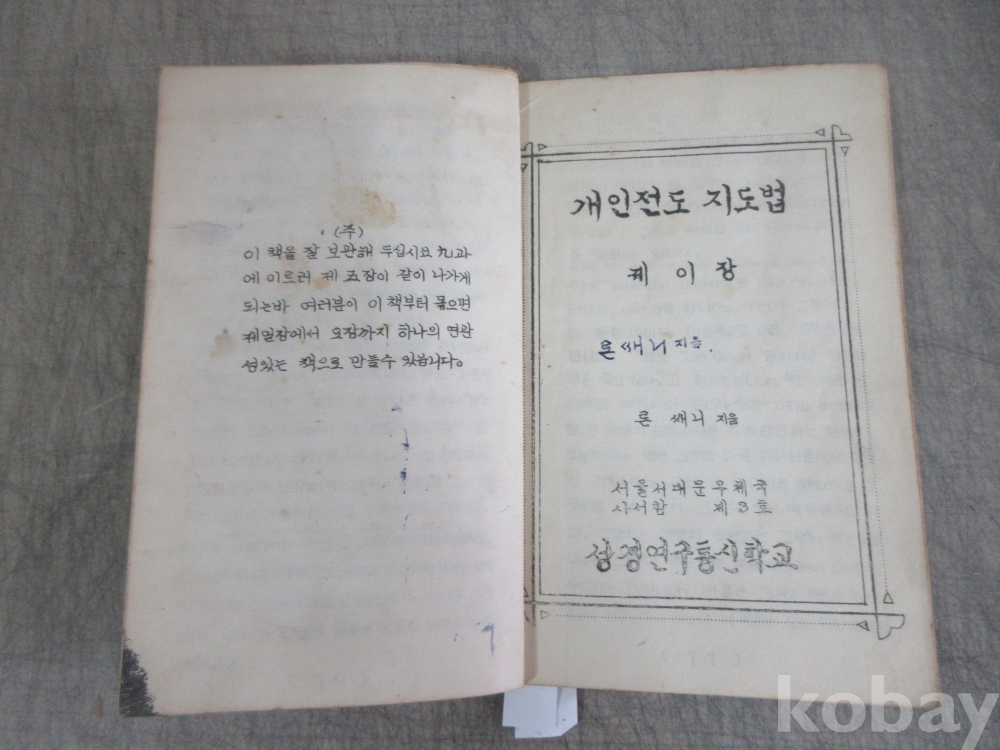 (주)
이 책을 잘 보관해 두십시요 九과
에 이르러 제 五장이 같이 나가게
되는바 여러분이 이 책부터 뫃으면
제일장에서 오장까지 하나의 연관
성있는 책으로 만들수 있습니다。
개인전도 지도법
제 이 장
론 쌔니 지음.
론 쌔니 지음
서울서대문우체국
사서함 제3호
성경연구통신학교
kobay